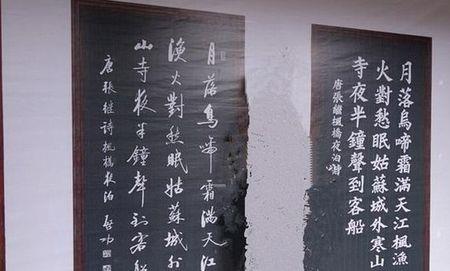 月落烏啼霜滿天江楓漁
火對愁眠姑蘇城外寒山
寺夜半鐘聲到客船
唐張繼楓橋夜泊
月落烏啼霜滿天江
漁火對愁眠姑蘇城外
山寺夜半鐘聲到客船
唐張继诗楓橋夜泊 啓功